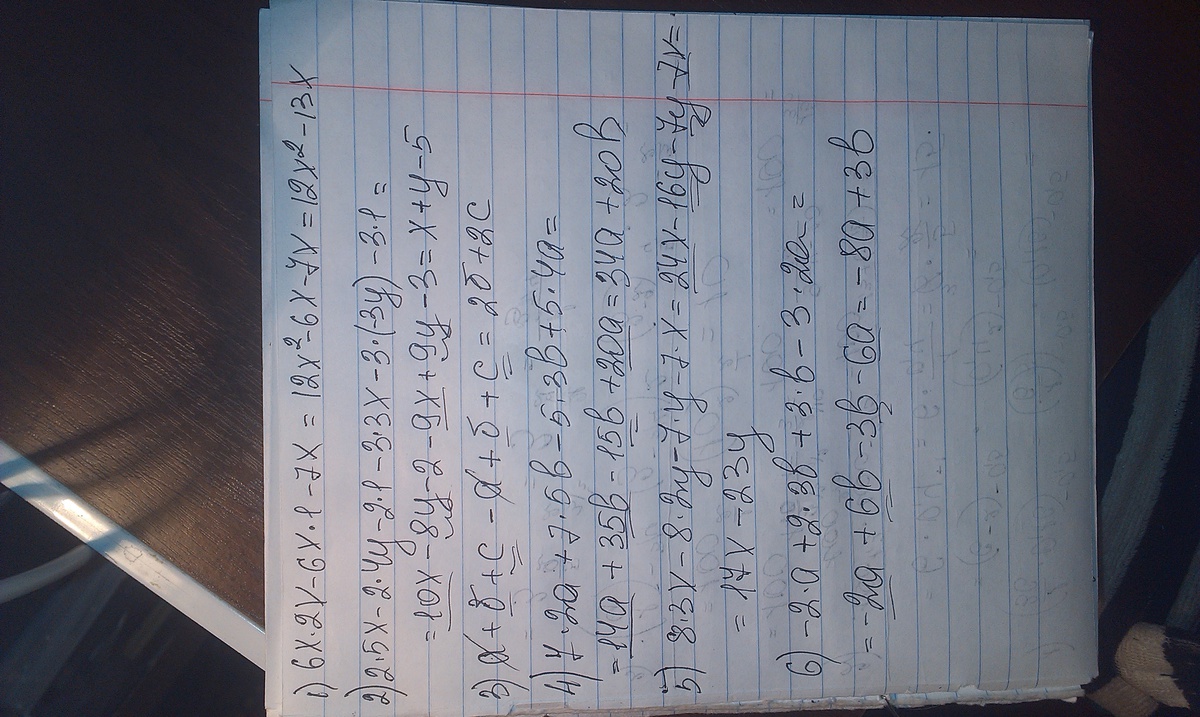 1) 6x·2x-6x·1-7x = 12x²-6x-7x = 12x²-13x
2) 2·5x-2·4y-2·1-3·3x-3·(-3y)-3·1=
=10x-8y-2-9x+9y-3=x+y-5
3) a+б+c-a+б+c=2б+2c
4) 7·2a+7·5b-5·3b+5·4a=
=14a+35b-15b+20a=34a+20b
5) 8·3x-8·2y-7·y-7·x=24x-16y-7y-7x=
=17x-23y
6) -2·a+2·3b+3·b-3·2a=
=-2a+6b-3b-6a=-8a+3b